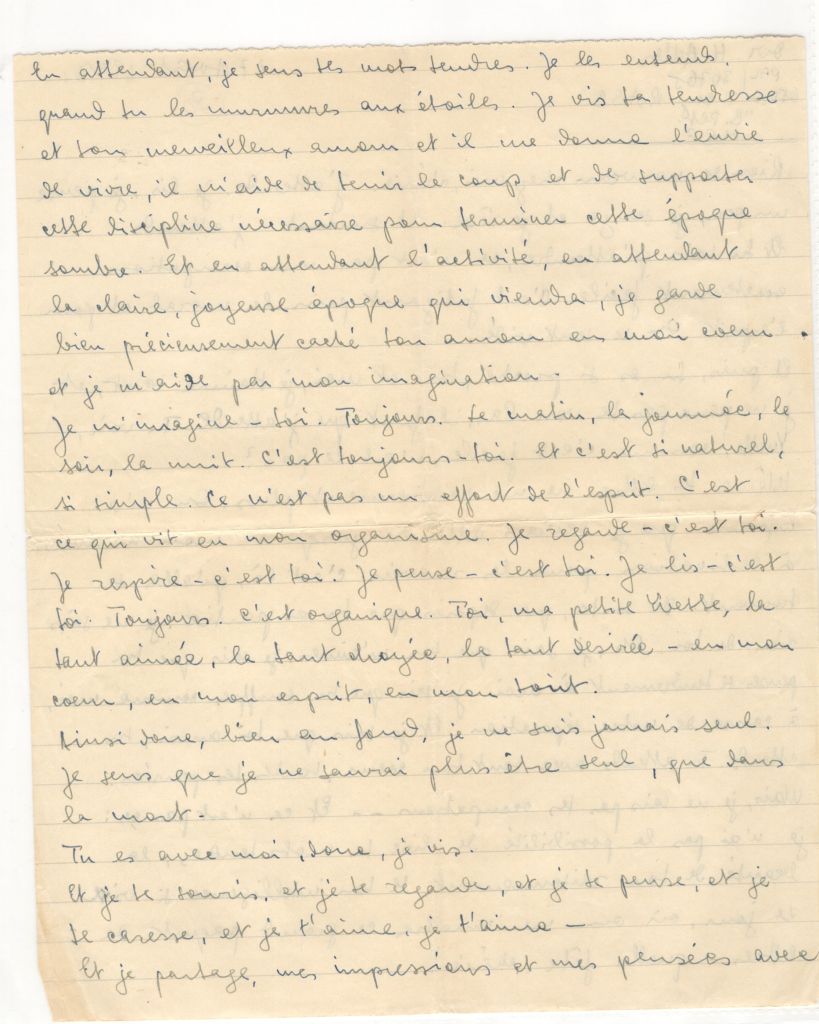 En attendant, je sens tes mots tendres. Je les entends,
quand tu les murmures aux étoiles. Je vis ta tendresse
et ton merveilleux amour et il me donne l'envie
de vivre, il m'aide de tenir le coup et de supporter
cette discipline nécessaire pour terminer cette époque
sombre. Et en attendant l'activité, en attendant
la claire, joyeuse époque qui viendra, je garde
bien précieusement caché ton amour en mon coeur.
et je m'aide par mon imagination.
Je m'imagine - toi. Toujours. Le matin, la journée, le
soir, la nuit. C'est toujours - toi. Et c'est si naturel,
si simple. Ce n'est pas un effort de l'esprit. C'est
ce qui vit en mon organisme. Je regarde - c'est toi.
Je respire - c'est toi. Je pense - c'est toi. Je lis - c'est
toi. Toujours. C'est organique. Toi, ma petite Yvette, la
tant aimée, la tant choyée, la tant desirée - en mon
coeur, en mon esprit, en mon tout.
Ainsi donc, bien au fond, je ne suis jamais seul.
Je sens que je ne saurai plus être seul, que dans
la mort.
Tu es avec moi, donc, je vis.
Et je te souris, et je te regarde, et je te pense, et je
te caresse, et je t'aime, je t'aime -
Et je partage, mes impressions et mes pensées avec